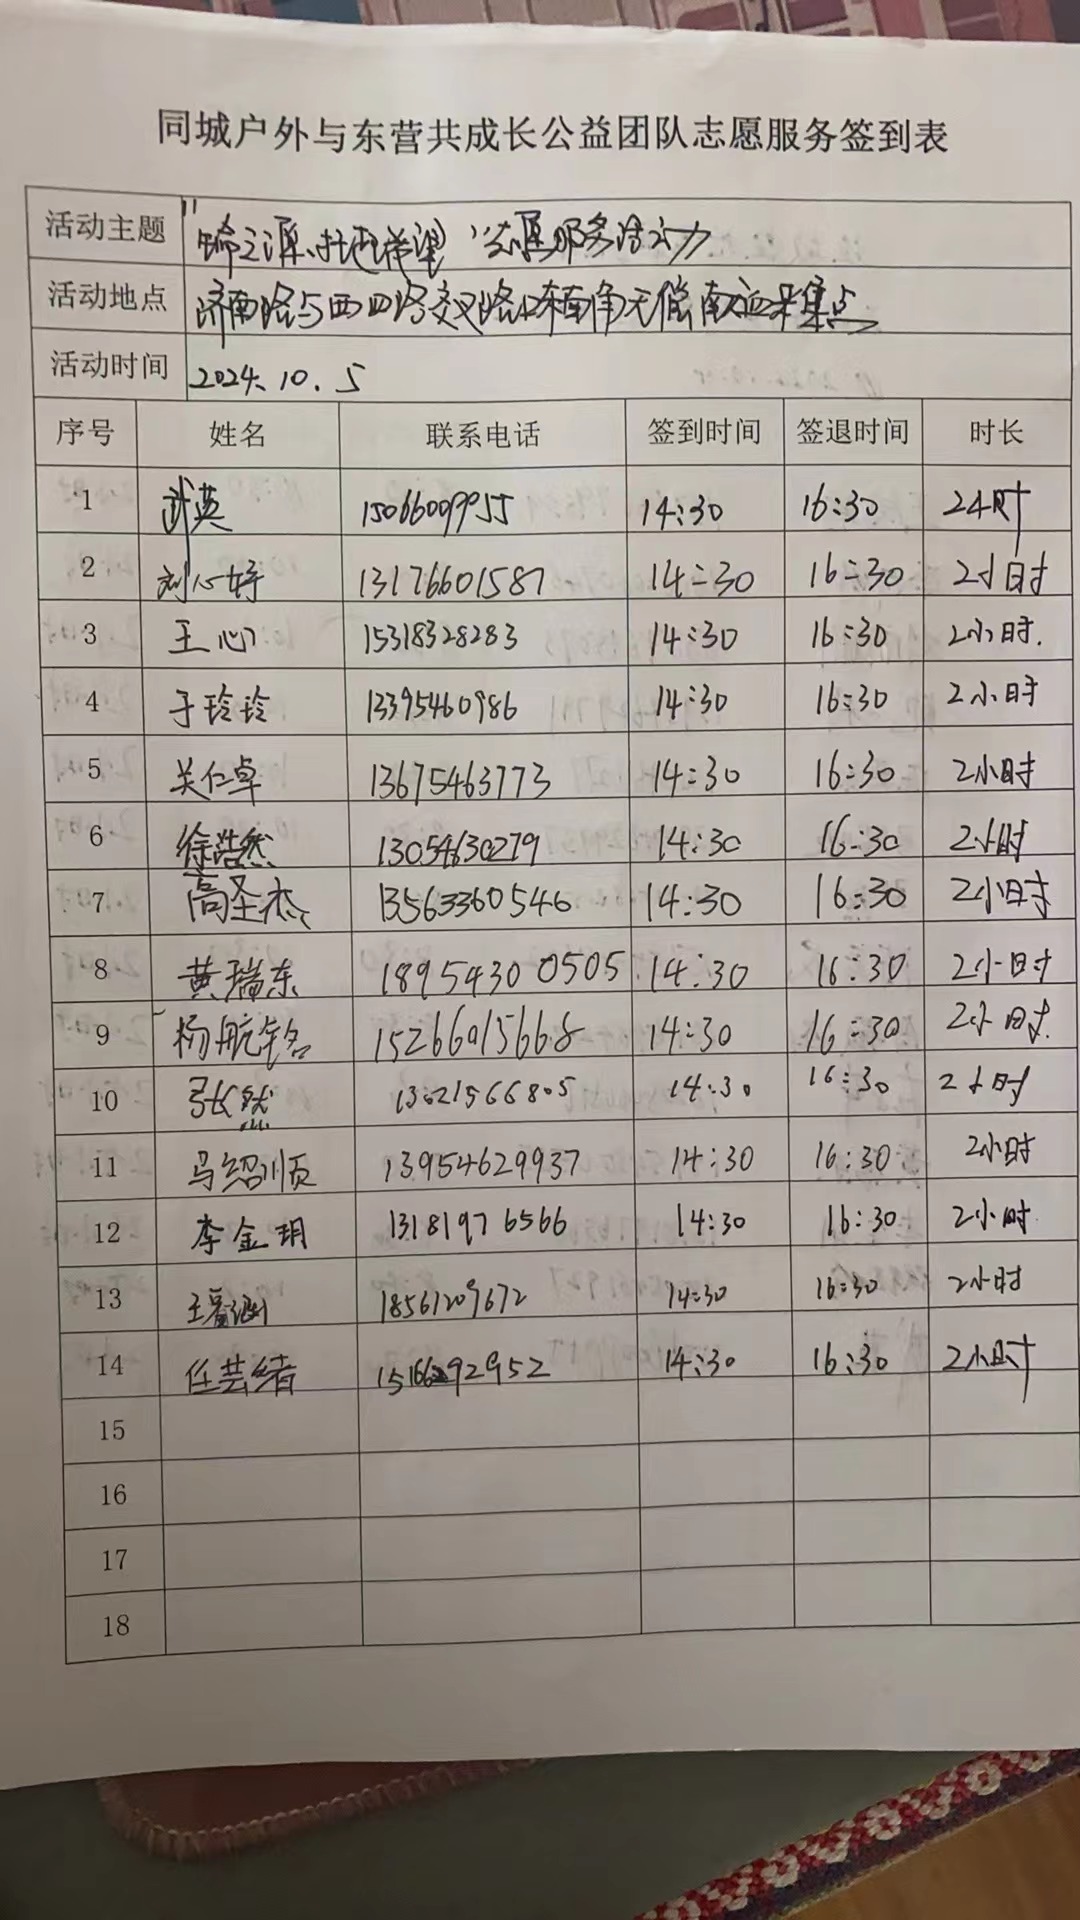 同城户外与东营共成长公益团队志愿服务签到表
活动主题 志愿服务活动
活动地点 济南路与西四路交叉路口东南角无偿献血采集点
活动时间 2024.10.5
序号 姓名 联系电话 签到时间 签退时间 时长
1 武英 15066009955 14:30 16:30 2小时
2 刘心婷 13176601587 14:30 16:30 2小时
3 王心 15318328283 14:30 16:30 2小时.
4 于玲玲 13395460986 14:30 16:30 2小时
5 关仁卓 13675463773 14:30 16:30 2小时
6 徐浩然 13054630279 14:30 16:30 2小时
7 高圣杰 13563360546 14:30 16:30 2小时
8 黄瑞东 18954300505 14:30 16:30 2小时
9 杨航铭 15266015668 14:30 16:30 2小时
10 张然 13621566805 14:30 16:30 2小时
11 马绍顺 13954629937 14:30 16:30 2小时
12 李金玥 13181976566 14:30 16:30 2小时
13 18561209672 14:30 16:30 2小时
14 任芸绪 14:30 16:30 2小时
15
16
17
18